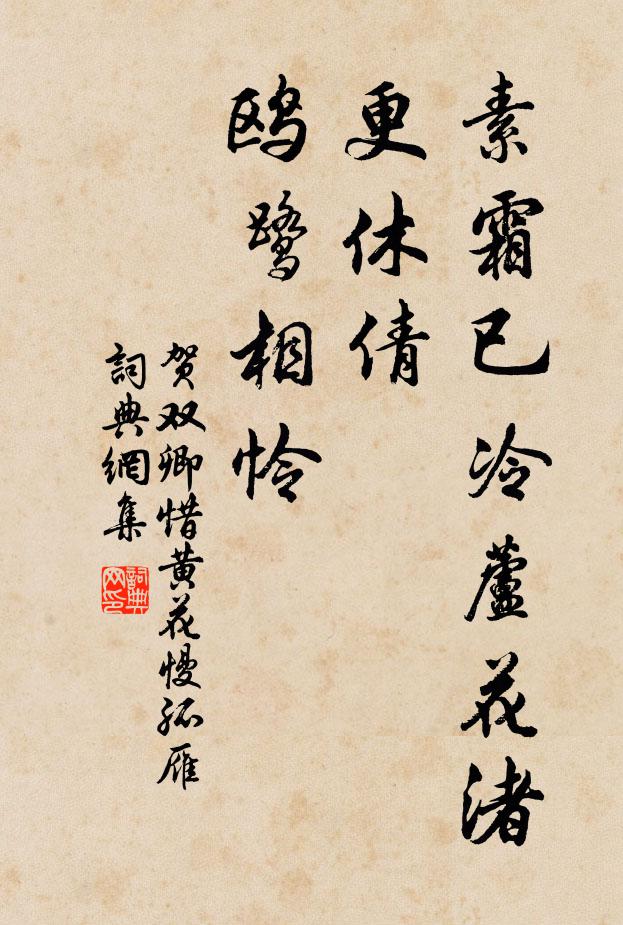 素霜已冷蘆花渚
更休倩
鸥鹭相怜
贺双卿惜黄花慢孤雁
詞典網集
詞典
网印